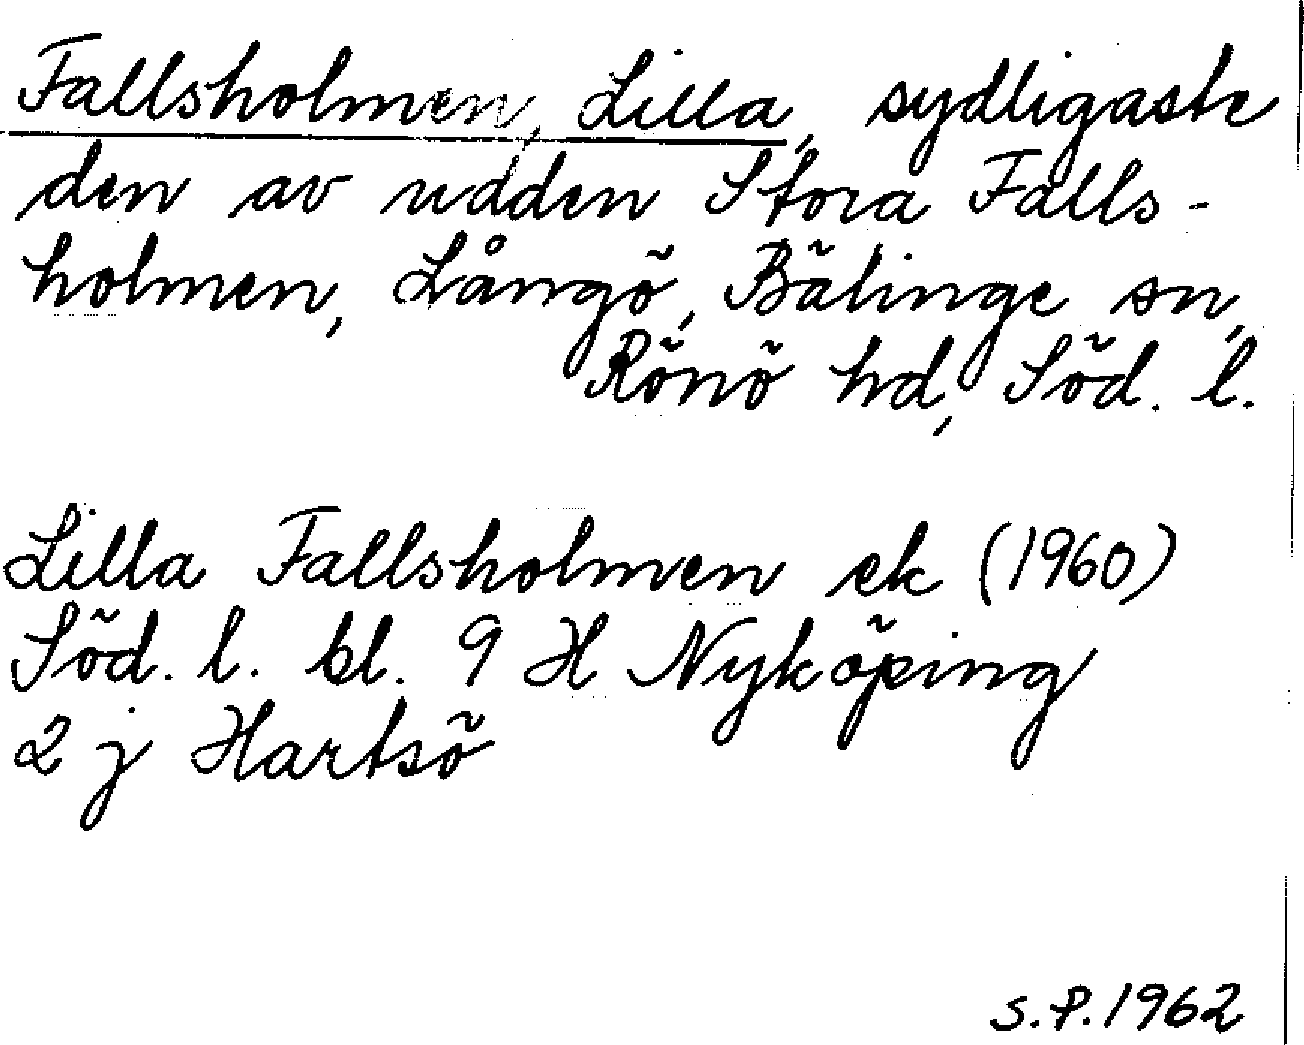 Fallsholmen, Lilla, sydligaste
den av udden Stora Falls-
holmen, Långö, Bälinge sn,
Rönö hd, Söd. l.
Lilla Fallsholmen ek (1960)
Söd. l. bl. 9 H Nyköping
2 j Hartsö
S.P. 1962